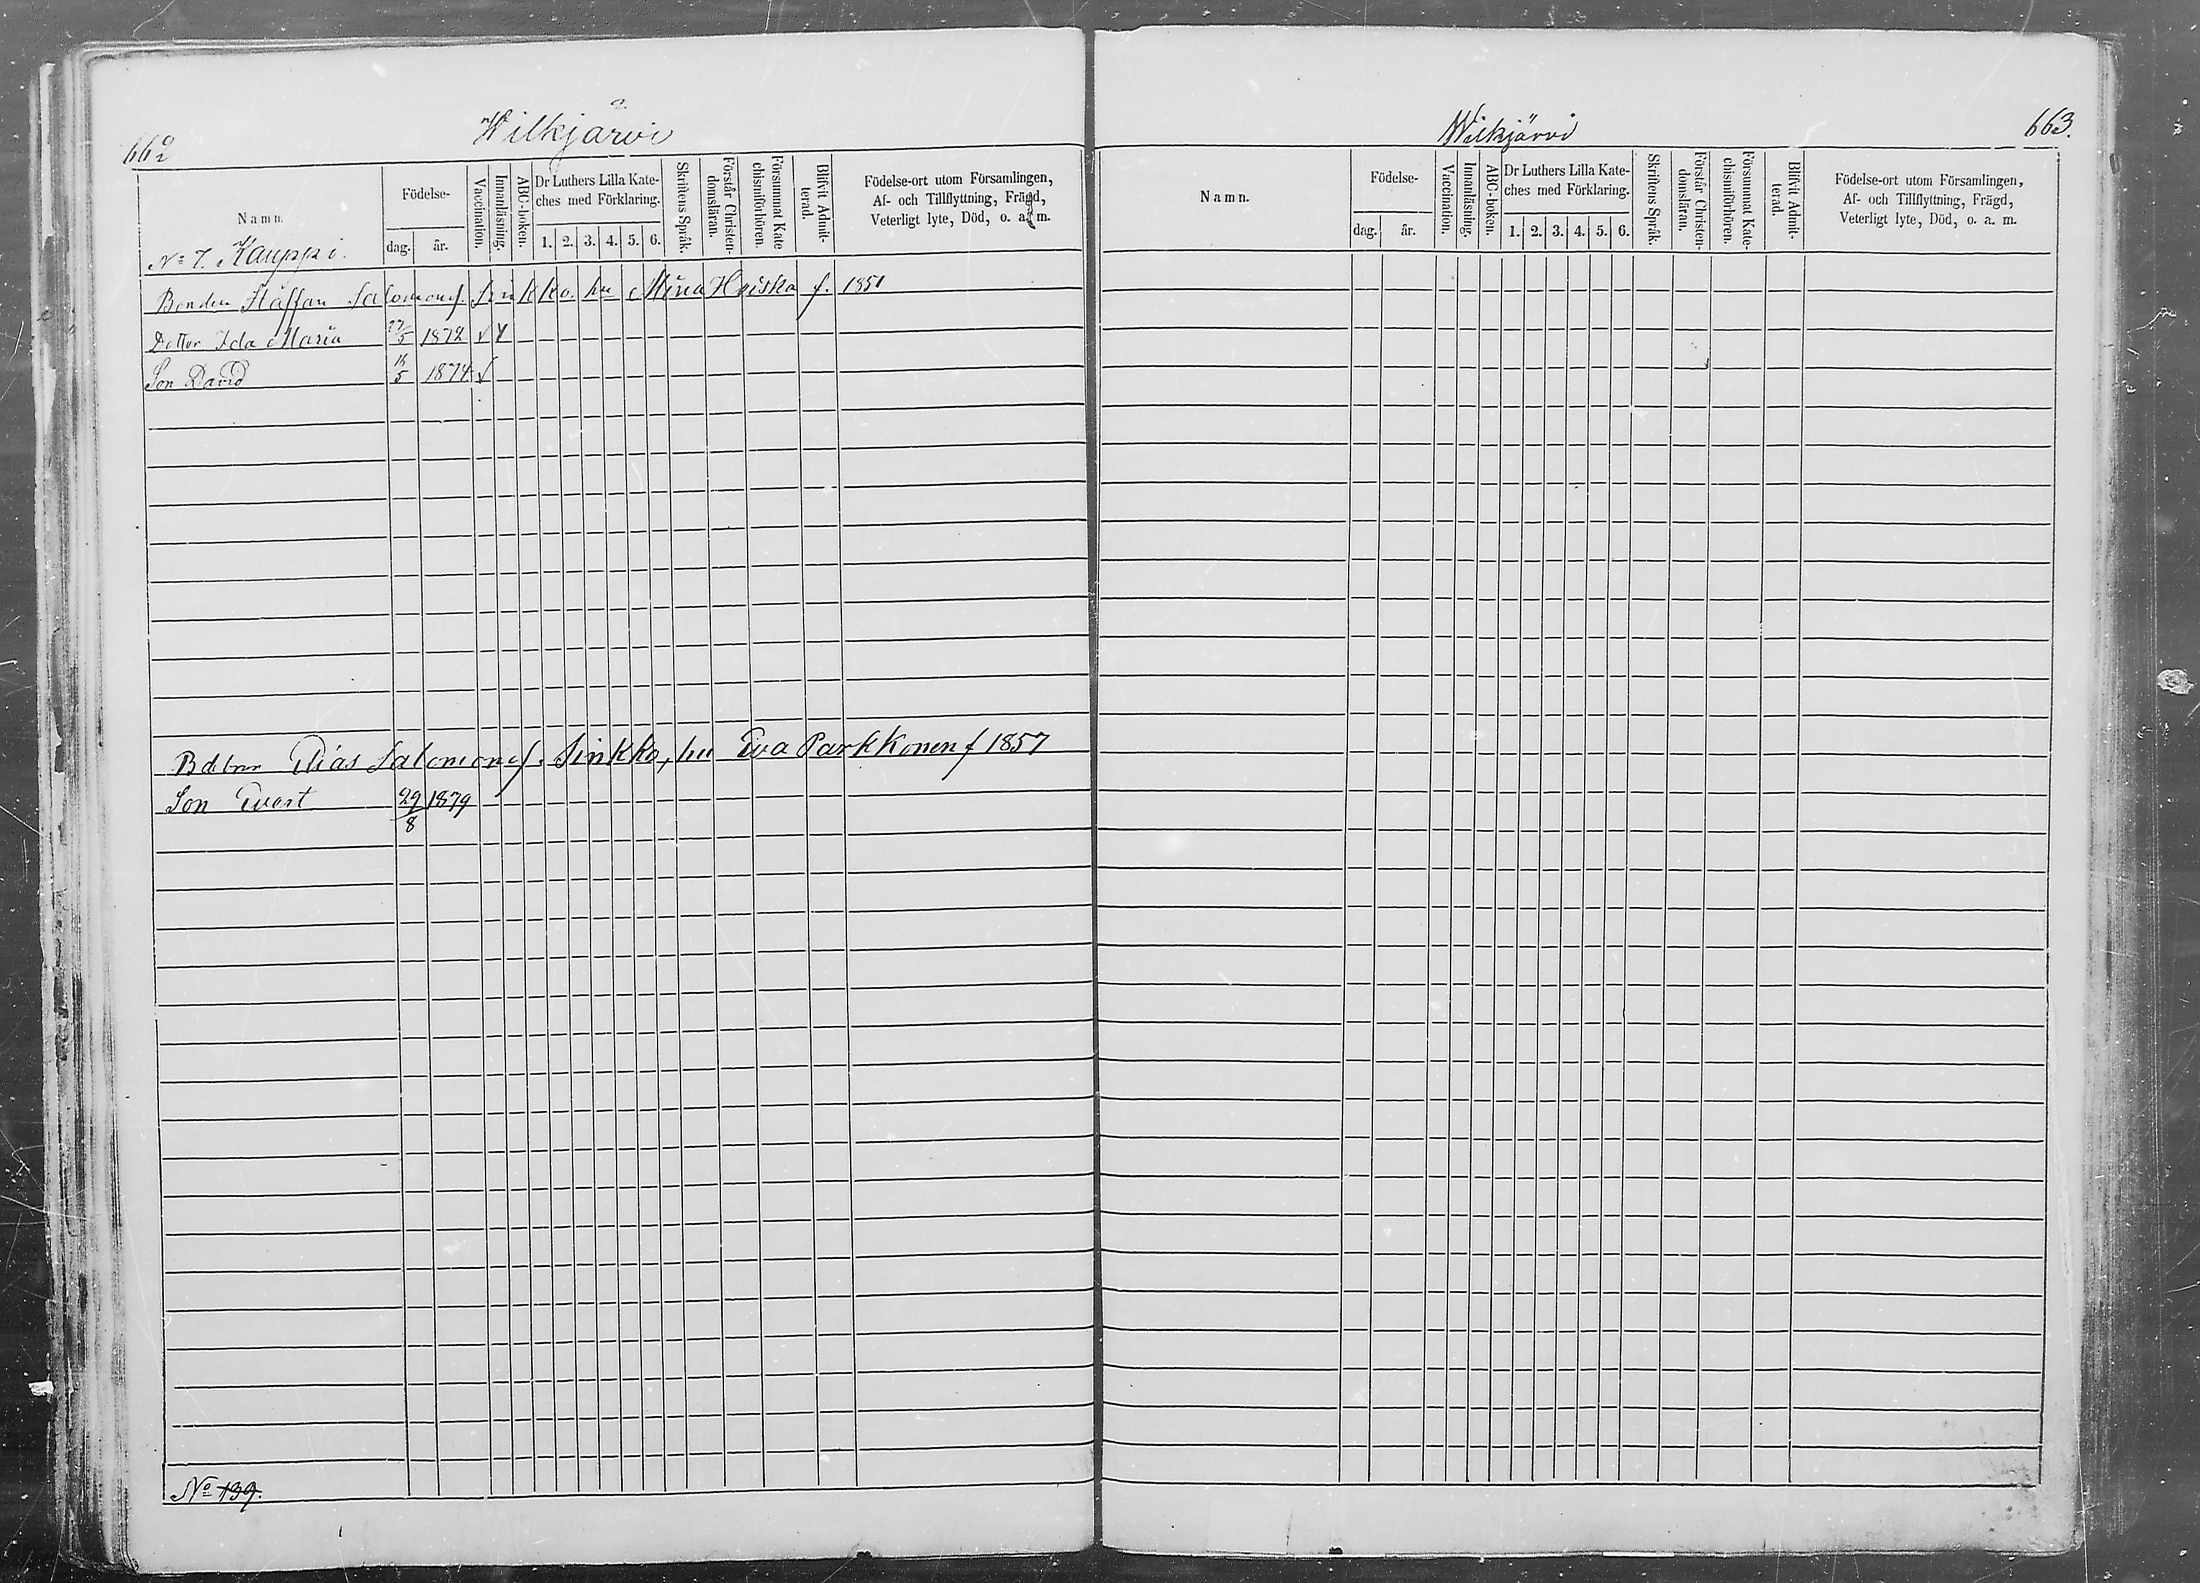 662
Wilkjärvi
Namn.
Födelse-
dag.
år.
Vaccination.
Innanläsning.
ABC-boken.
Dr Luthers Lilla Kate-
ches med Förklaring.
1. 2. 3. 4. 5. 6.
Skriftens Språk.
Förstår Christen-
domsläran.
Försummat Kate
chismiförhören.
Blifvit Admit-
terad.
Födelse-ort utom Församlingen,
Af- och Tillflyttning, Frägd,
Veterligt lyte, Död, o. a. m.
No 7. Kauppi.
Bonden Staffan Salomonsf. Sinkko. hu Mina Heiska f. 1851
Dotter Ida Maria 27/5 1872
Son David 1874
Bdbror Elias Salomonsf. Sinkko, hu Eva Parkkonen f 1857
Son Evert 29/8 1879
No 139.
663.
Wilkjärvi
Namn.
Födelse-
dag.
år.
Vaccination.
Innanläsning.
ABC-boken.
Dr Luthers Lilla Kate-
ches med Förklaring.
1. 2. 3. 4. 5. 6.
Skriftens Språk.
Förstår Christen-
domsläran.
Försummat Kate-
chismiförhören.
Blifvit Admit-
terad.
Födelse-ort utom Församlingen,
Af- och Tillflyttning, Frägd,
Veterligt lyte, Död, o. a. m.